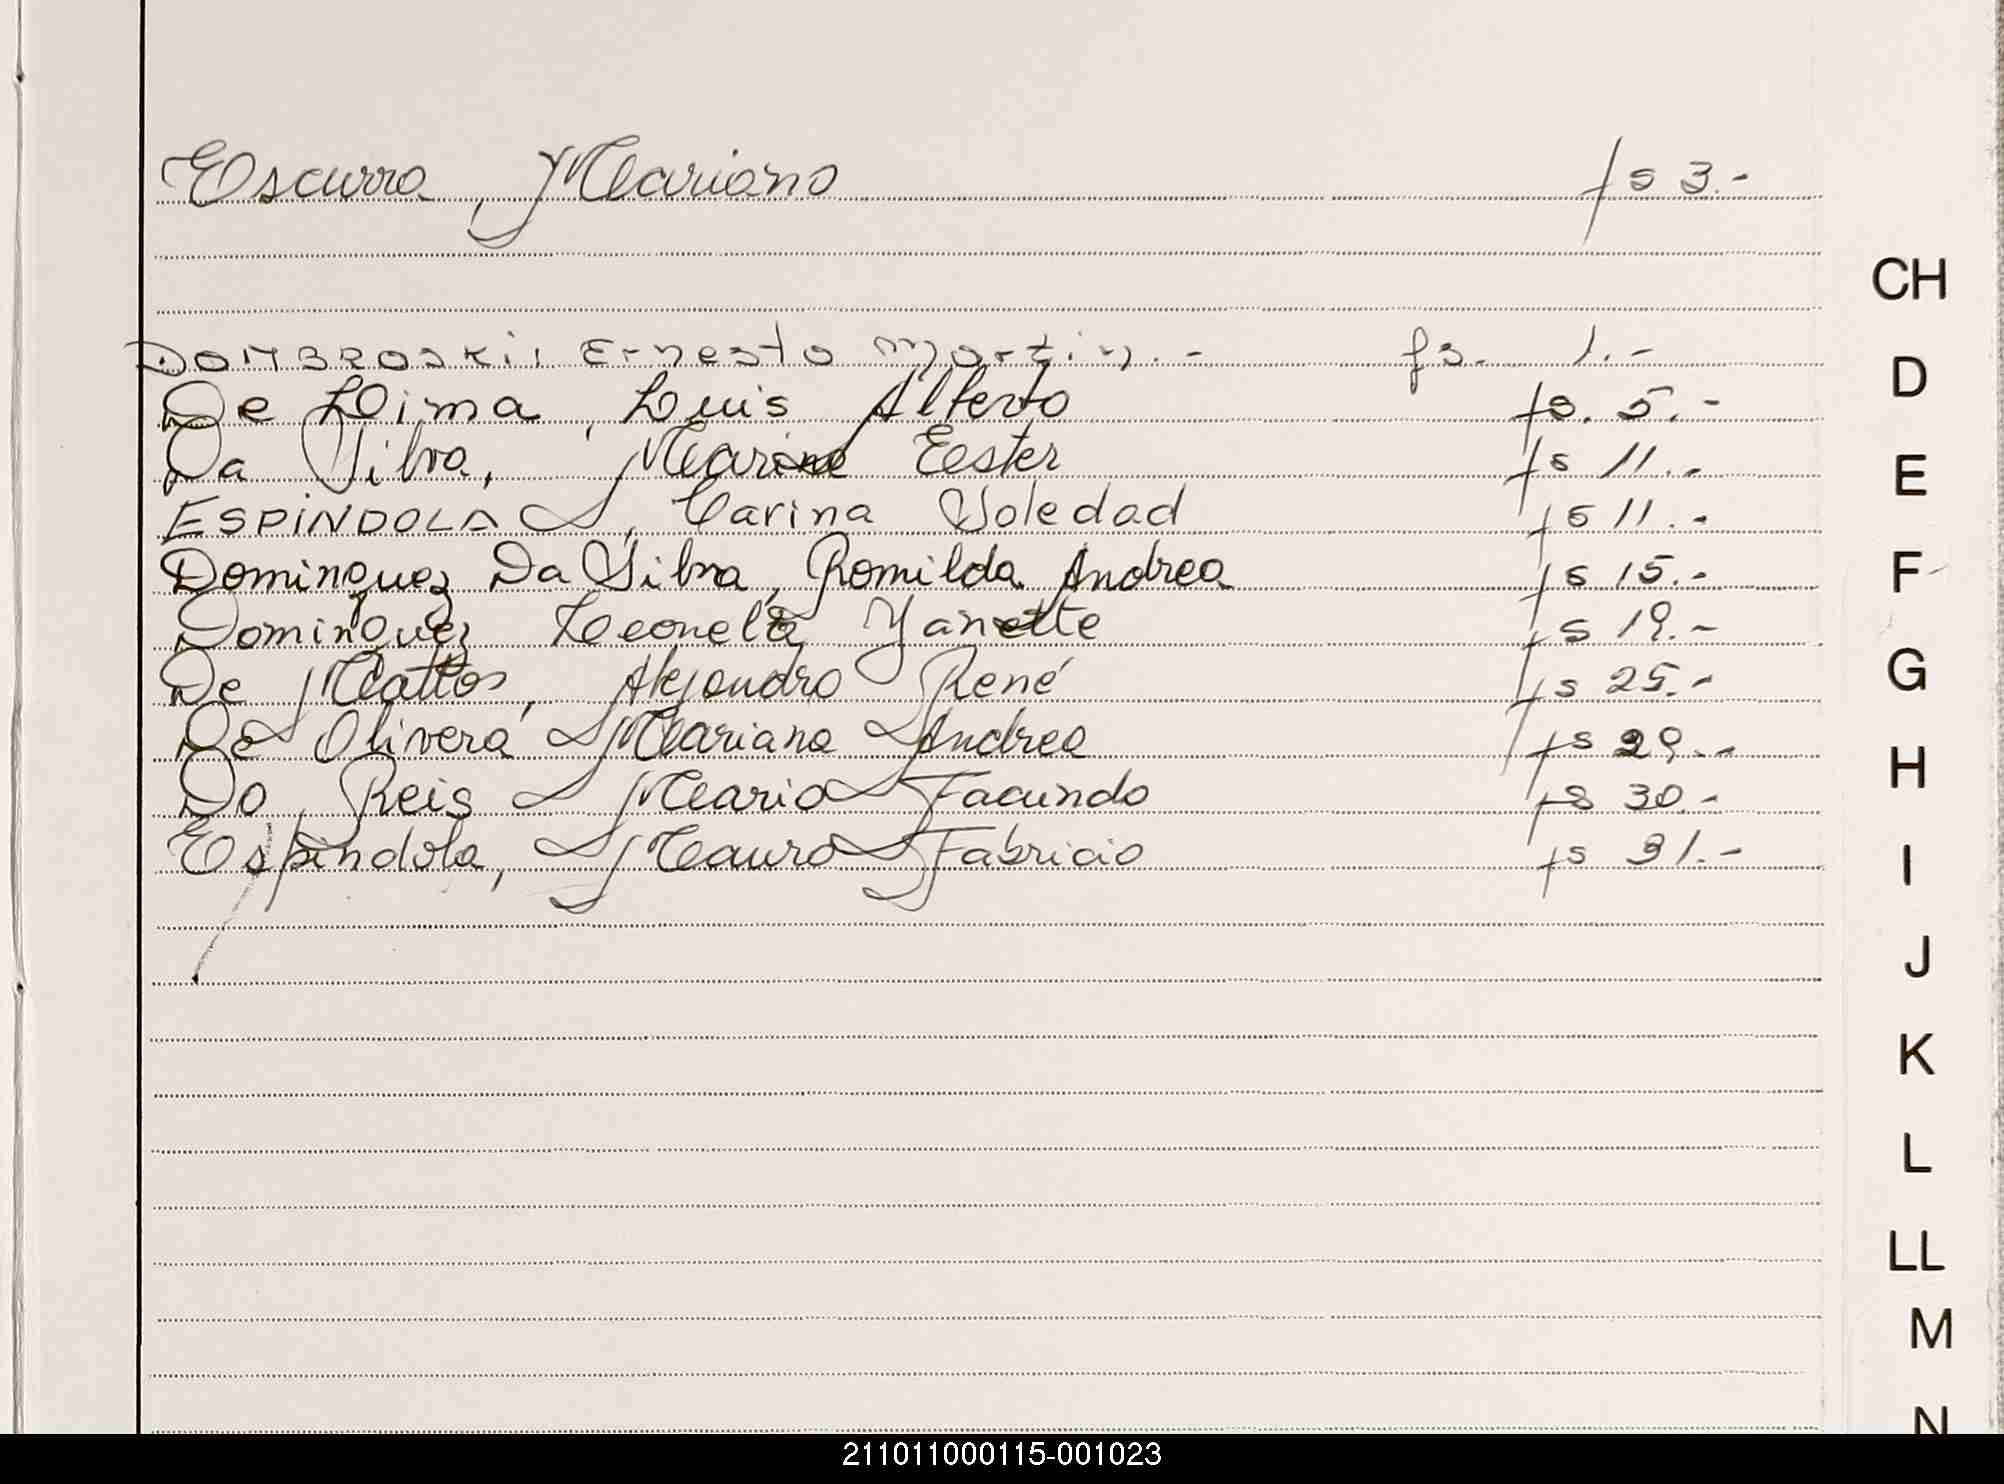 Escurra, Mariano fs 3.-
DOMBROSKI, Ernesto Martin.- fs. 1.-
De Lima, Luis Alberto fs. 5.-
Da Silva, Marine Ester fs 11.-
ESPÍNDOLA, Carina Soledad fs 11.-
Dominguez Da Silva, Romilda Andrea fs 15.-
Dominguez Leonela Yanette fs 19.-
De Mattos, Alejandro René fs 25.-
De Olivera Mariana Andrea fs 29.-
Do Reis Mario Facundo fs 30.-
Espindola, Mauro Fabricio fs 31.-
CH
D
E
F
G
H
I
J
K
L
LL
M
N
211011000115-001023